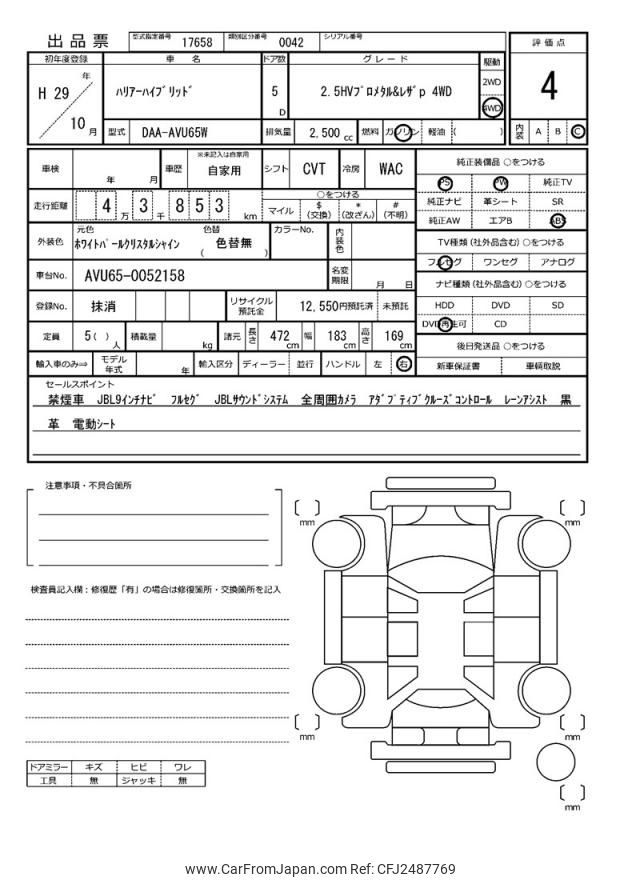 出品票
型式指定番号 17658 類別区分番号 0042 シリアル番号
初年度登録 車名 ドア数 グレード 駆動 評価点
H 29 年 10 月
ハリアーハイブリッド 5 D 2.5HVプロメタル&レザp 4WD 2WD 4WD 4
型式 DAA-AVU65W 排気量 2,500 cc 燃料 ガソリン 軽油 ( ) 内装 A B C
車検 年 月 車歴 ※未記入は自家用 自家用 シフト CVT 冷房 WAC
走行距離 4 万 3 千 8 5 3 km ○をつける マイル $ (交換) * (改ざん) # (不明)
外装色 元色 ホワイトパールクリスタルシャイン 色替 ( 色替無 ) カラーNo. 内装色
車台No. AVU65-0052158 名変期限 月 日
登録No. 抹消 リサイクル預託金 12,550円預託済 未預託
定員 5 ( ) 人 積載量 kg 諸元 長さ 472 cm 幅 183 cm 高さ 169 cm
輸入車のみ⇒ モデル年式 年 輸入区分 ディーラー 並行 ハンドル 左 右
純正装備品 ○をつける
PS PW 純正TV
純正ナビ 革シート SR
純正AW エアB ABS
TV種類 (社外品含む) ○をつける
フルセグ ワンセグ アナログ
ナビ種類 (社外品含む) ○をつける
HDD DVD SD
DVD再生可 CD
後日発送品 ○をつける
新車保証書 車輌取説
セールスポイント
禁煙車 JBL9インチナビ フルセグ JBLサウンドシステム 全周囲カメラ アダプティブクルーズコントロール レーンアシスト 黒
革 電動シート
注意事項・不具合箇所
検査員記入欄：修復歴「有」の場合は修復箇所・交換箇所を記入
ドアミラー キズ ヒビ ワレ
工具 無 ジャッキ 無
mm
mm
mm
mm
mm
www.CarFromJapan.com Ref: CFJ2487769